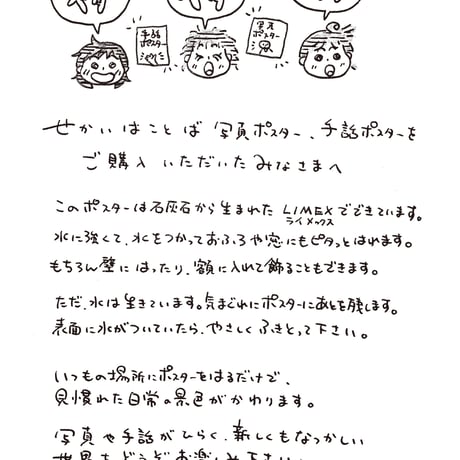 手話
ポスター
写真
ポスター
せかいはことば 写真ポスター、手話ポスターを
ご購入いただいたみなさまへ
このポスターは石灰石から生まれた LIMEXでできています。
ライメックス
水に強くて、水をつかっておふろや窓にもピタっとはれます。
もちろん壁にはったり、額に入れて飾ることもできます。
ただ、水は生きています。気まぐれにポスターにあとを残します。
表面に水がついていたら、やさしくふきとって下さい。
いつもの場所にポスターをはるだけで、
見慣れた日常の景色がかわります。
写真や手話がひらく、新しくもなつかしい